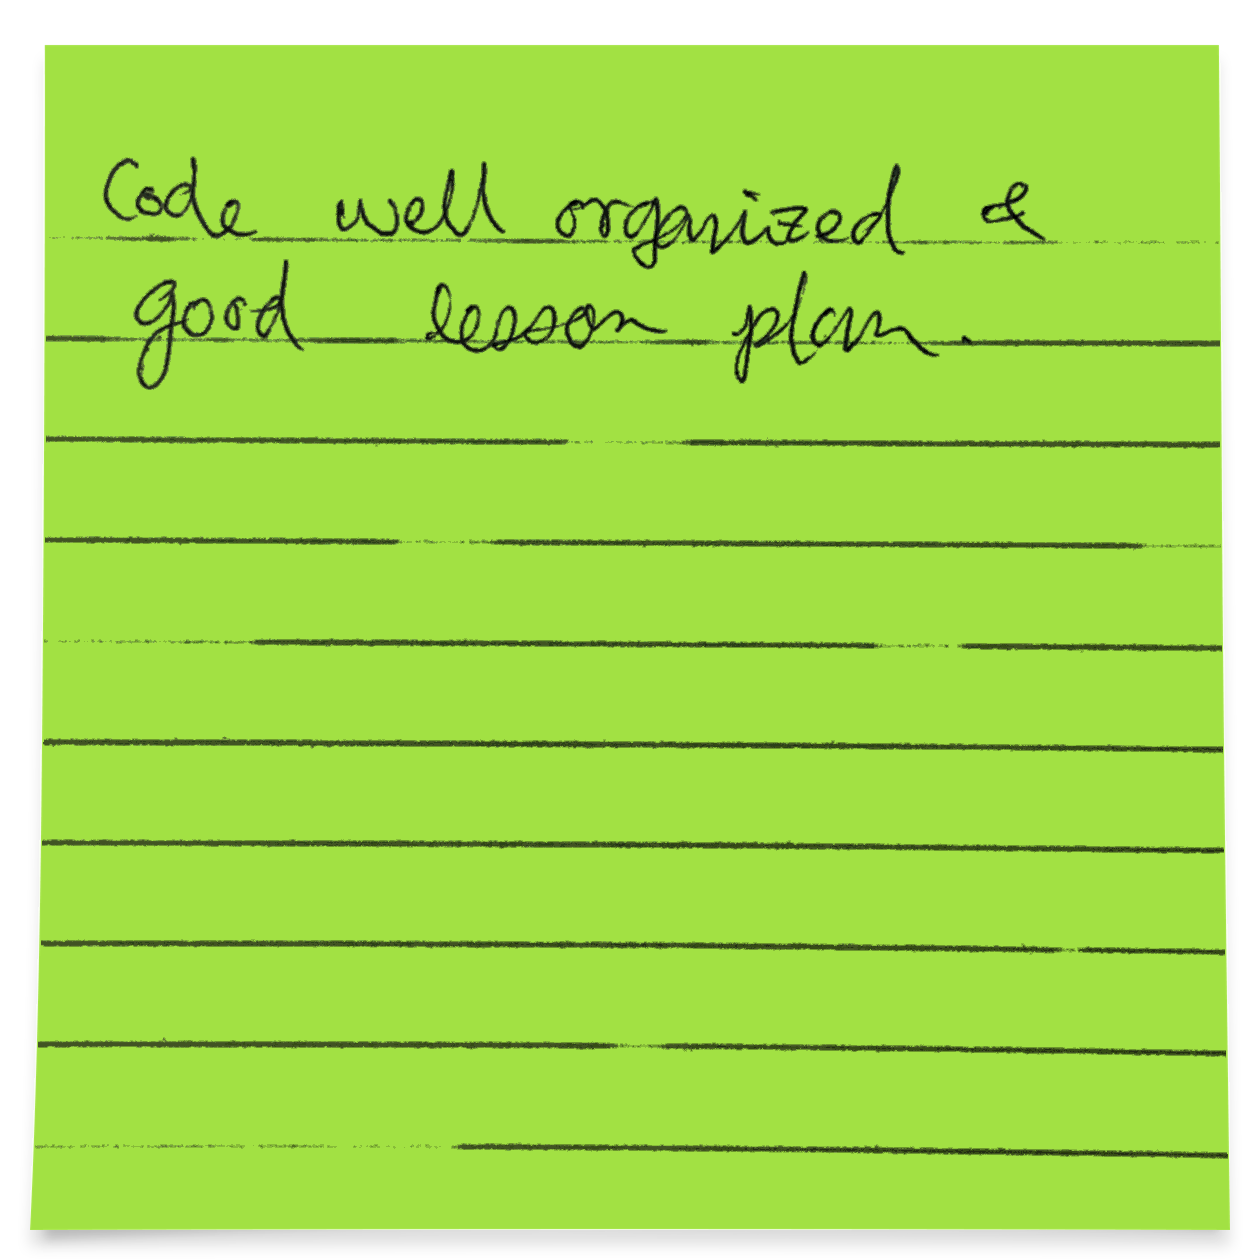 Code well organized &
good lesson plan.